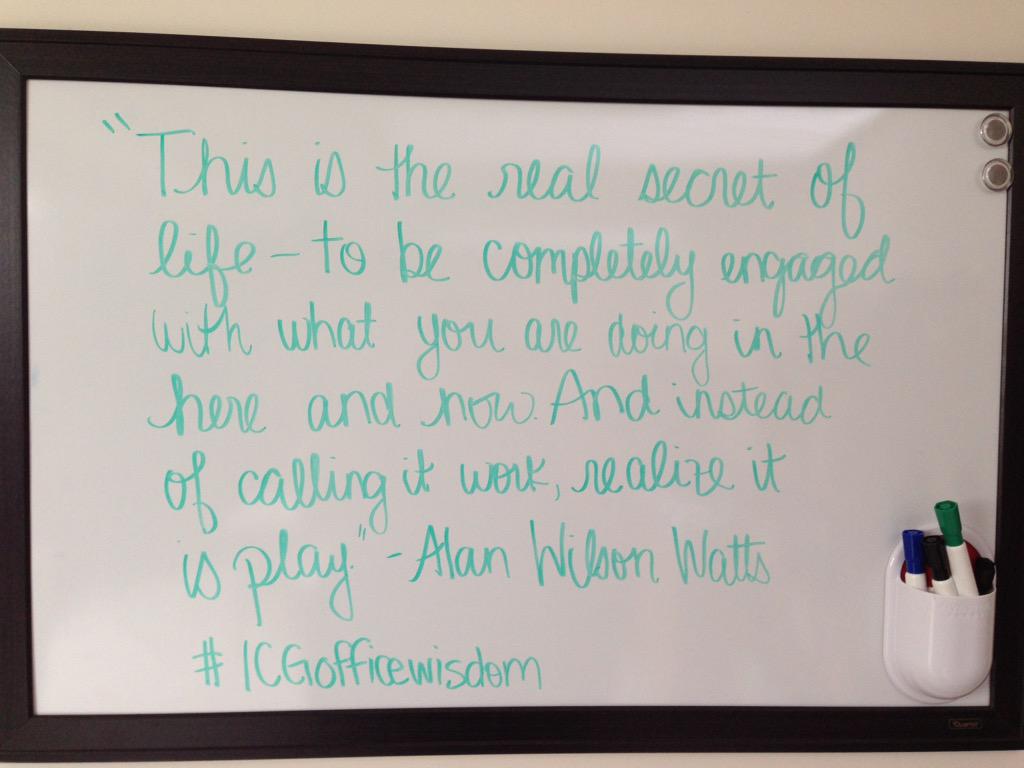 "This is the real secret of
life - to be completely engaged
with what you are doing in the
here and now. And instead
of calling it work, realize it
is play." - Alan Wilson Watts
#ICGofficewisdom
Quartet